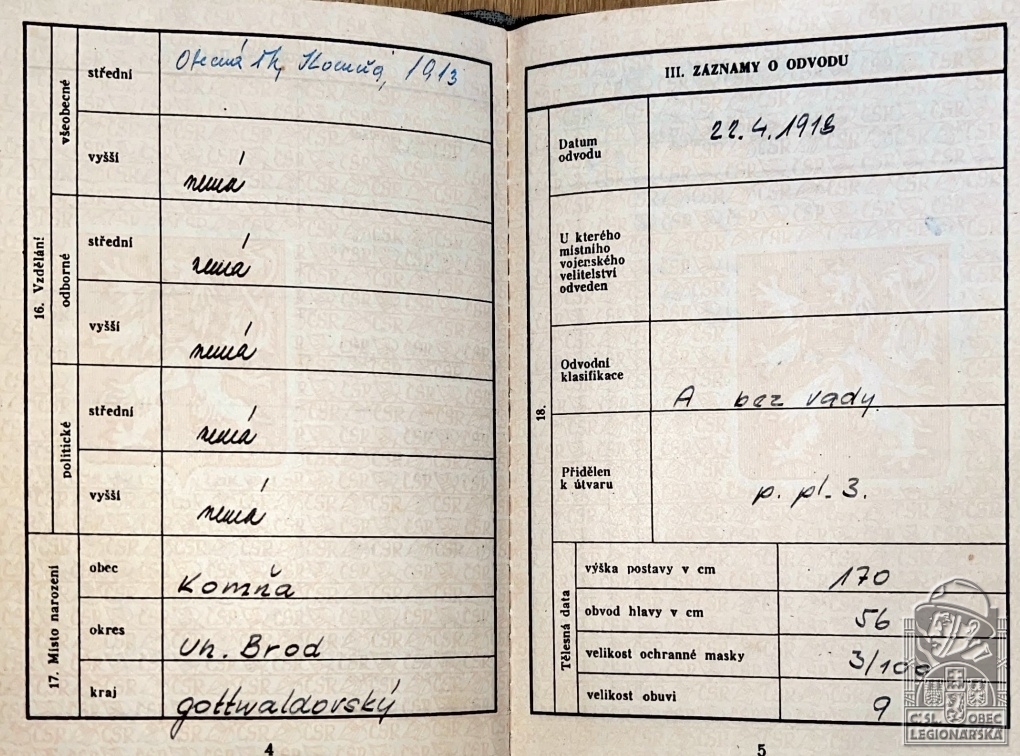 16. Vzdělání
všeobecné
střední
Obecná šk, Komňa, 1913
vyšší
nemá
odborné
střední
nemá
vyšší
nemá
politické
střední
nemá
vyšší
nemá
17. Místo narození
obec
Komňa
okres
Uh. Brod
kraj
gottwaldovský
4
III. ZÁZNAMY O ODVODU
18.
Datum
odvodu
22.4.1918
U kterého
místního
vojenského
velitelství
odveden
Odvodní
klasifikace
A bez vady.
Přidělen
k útvaru
p. pl. 3.
Tělesná data
výška postavy v cm
170
obvod hlavy v cm
56
velikost ochranné masky
3/100
velikost obuvi
9
5
ČSL. OBEC
LEGIONÁŘSKÁ